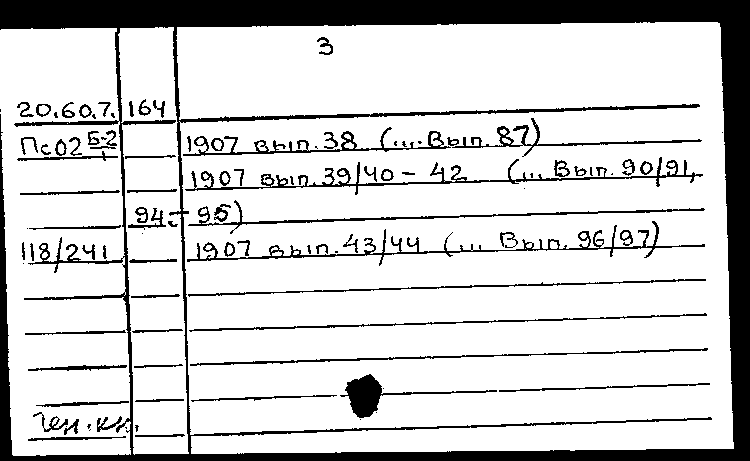 3
20.60.7. 164
Пс02 Б-2/1 1907 вып. 38 (... Вып. 87)
1907 вып. 39/40 - 42 (... Вып. 90/91,
94 - 95)
118/241 1907 вып. 43/44 (... Вып. 96/97)
Ген. кн.